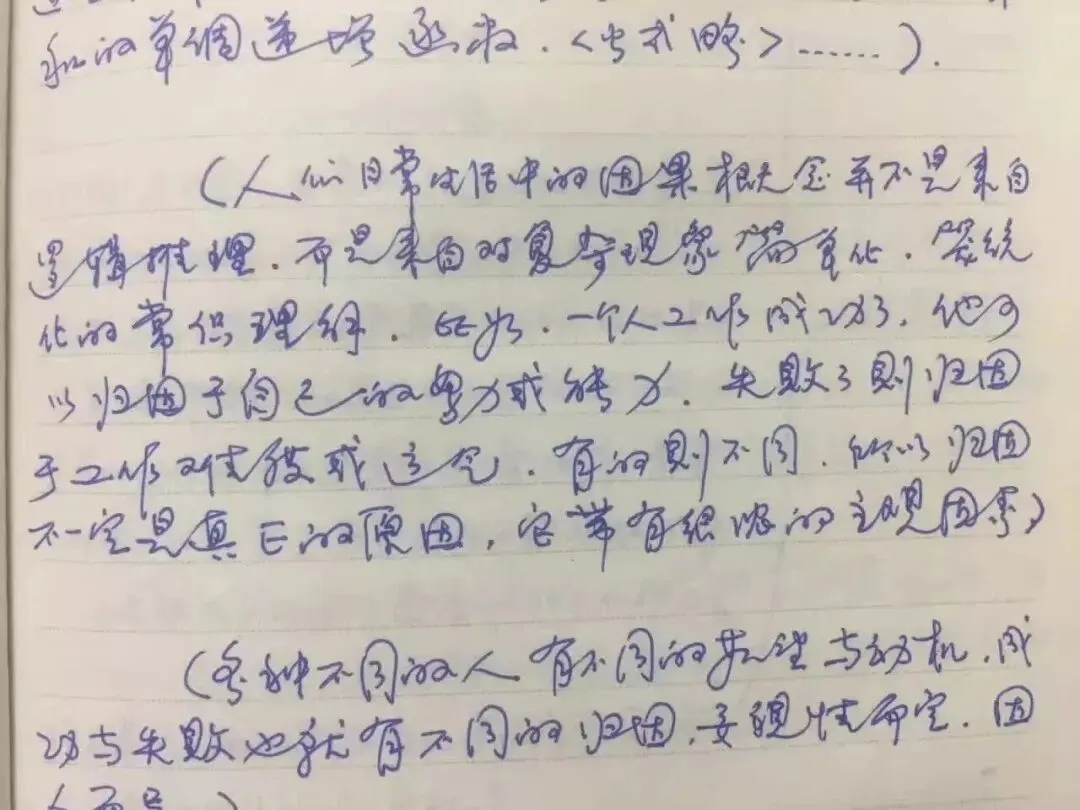 和的单调递增函数.<公式略>……).
(人们日常生活中的因果概念并不是来自
逻辑推理.而是来自对复杂现象简单化.笼统
化的常识理解.比如.一个人工作成功了.他可
以归因于自己的努力或能力.失败了则归因
于工作难度或运气.有的则不同.所以归因
不一定是真正的原因,它带有很浓的主观因素)
(各种不同的人有不同的个性与动机.成
功与失败也就有不同的归因,要视性而定.因